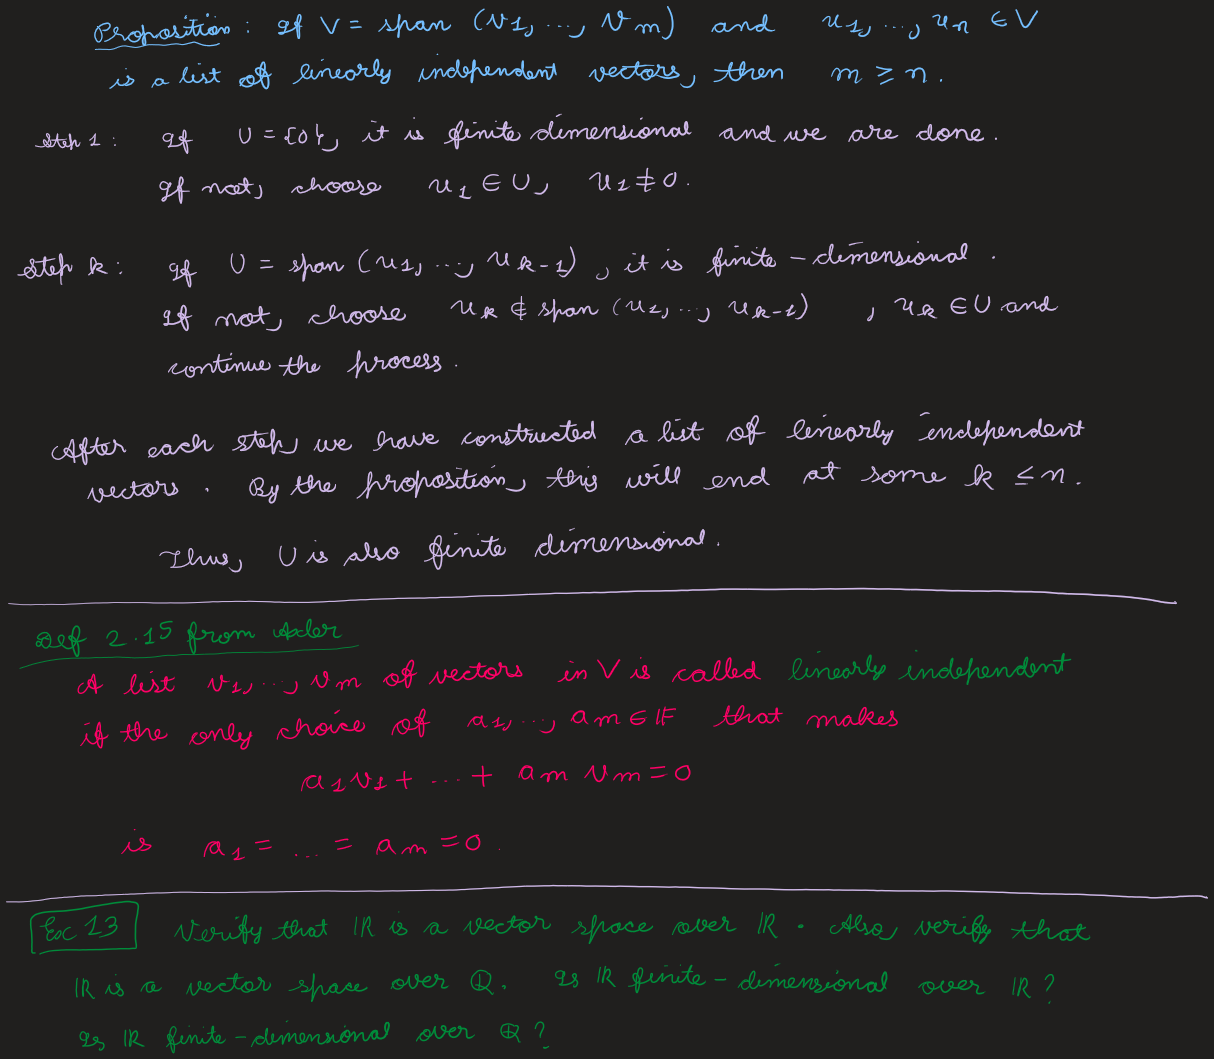 Proposition : If V = span (v1, ..., vm) and u1, ..., un ∈ V
is a list of linearly independent vectors, then m ≥ n.
Step 1 : If U = {0}, it is finite dimensional and we are done.
If not, choose u1 ∈ U, u1 ≠ 0.
Step k : If U = span (u1, ..., uk-1), it is finite-dimensional.
If not, choose uk ∉ span (u1, ..., uk-1), uk ∈ U and
continue the process.
After each step, we have constructed a list of linearly independent
vectors. By the proposition, this will end at some k ≤ n.
Thus, U is also finite dimensional.
Def 2.15 from Axler
A list v1, ..., vm of vectors in V is called linearly independent
if the only choice of a1, ..., am ∈ 𝔽 that makes
a1v1 + ... + am vm = 0
is a1 = ... = am = 0.
Exc 13 Verify that ℝ is a vector space over ℝ. Also, verify that
ℝ is a vector space over ℚ. Is ℝ finite-dimensional over ℝ?
Is ℝ finite-dimensional over ℚ?